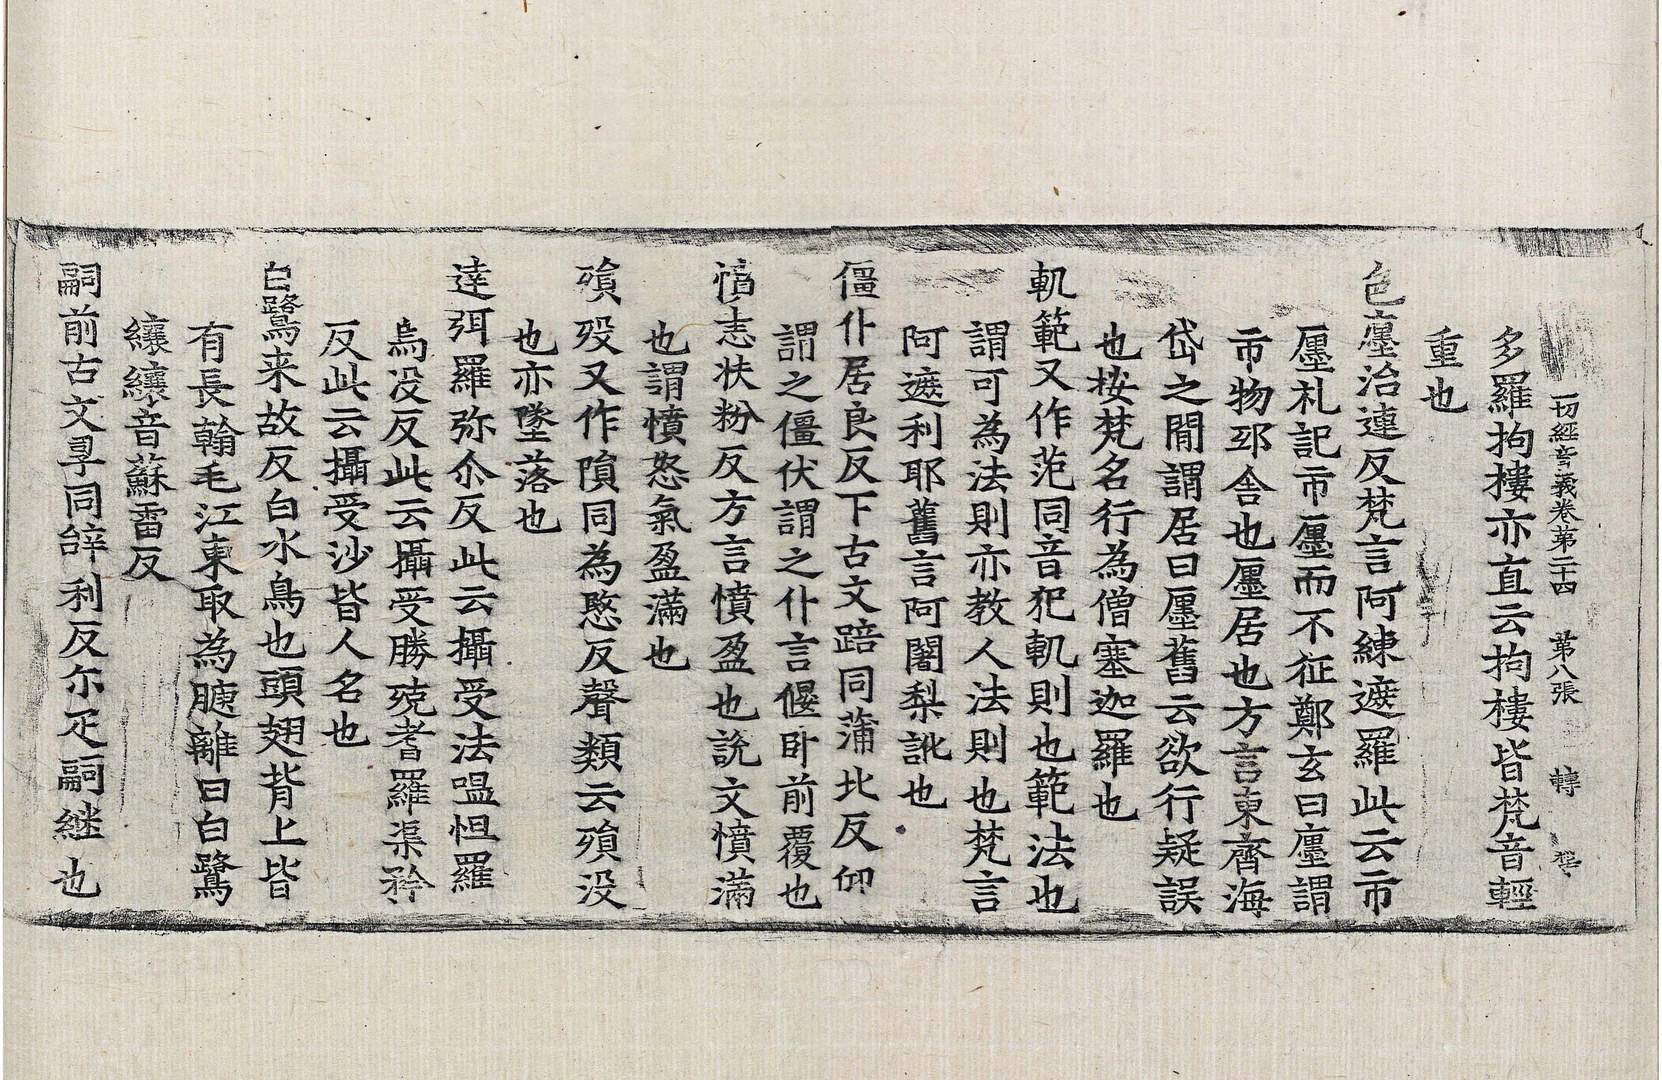 一切經音義卷第二十四 第八張 轉
多羅拘樓亦直云拘樓皆梵音輕
重也
色廛治連反梵言阿練遮羅此云市
廛札記市廛而不征鄭玄曰廛謂
市物邸舍也廛居也方言東齊海
岱之閒謂居曰廛舊云欲行疑誤
也按梵名行為僧塞迦羅也
軌範又作范同音犯軌則也範法也
謂可為法則亦教人法則也梵言
阿遮利耶舊言阿闍梨訛也
僵仆居良反下古文踣同蒲北反仰
謂之僵伏謂之仆言偃卧前覆也
憤恚扶粉反方言憤盈也說文憤滿
也謂憤怒氣盈滿也
殞歿又作隕同為愍反聲類云殞没
也亦墜落也
達弭羅弥尒反此云攝受法嗢怛羅
烏没反此云攝受勝殑耆羅渠矜
反此云攝受沙皆人名也
白鷺来故反白水鳥也頭翅背上皆
有長翰毛江東取為睫離曰白鷺
纕纕音蘇雷反
嗣前古文孠同辝利反尔疋嗣継也